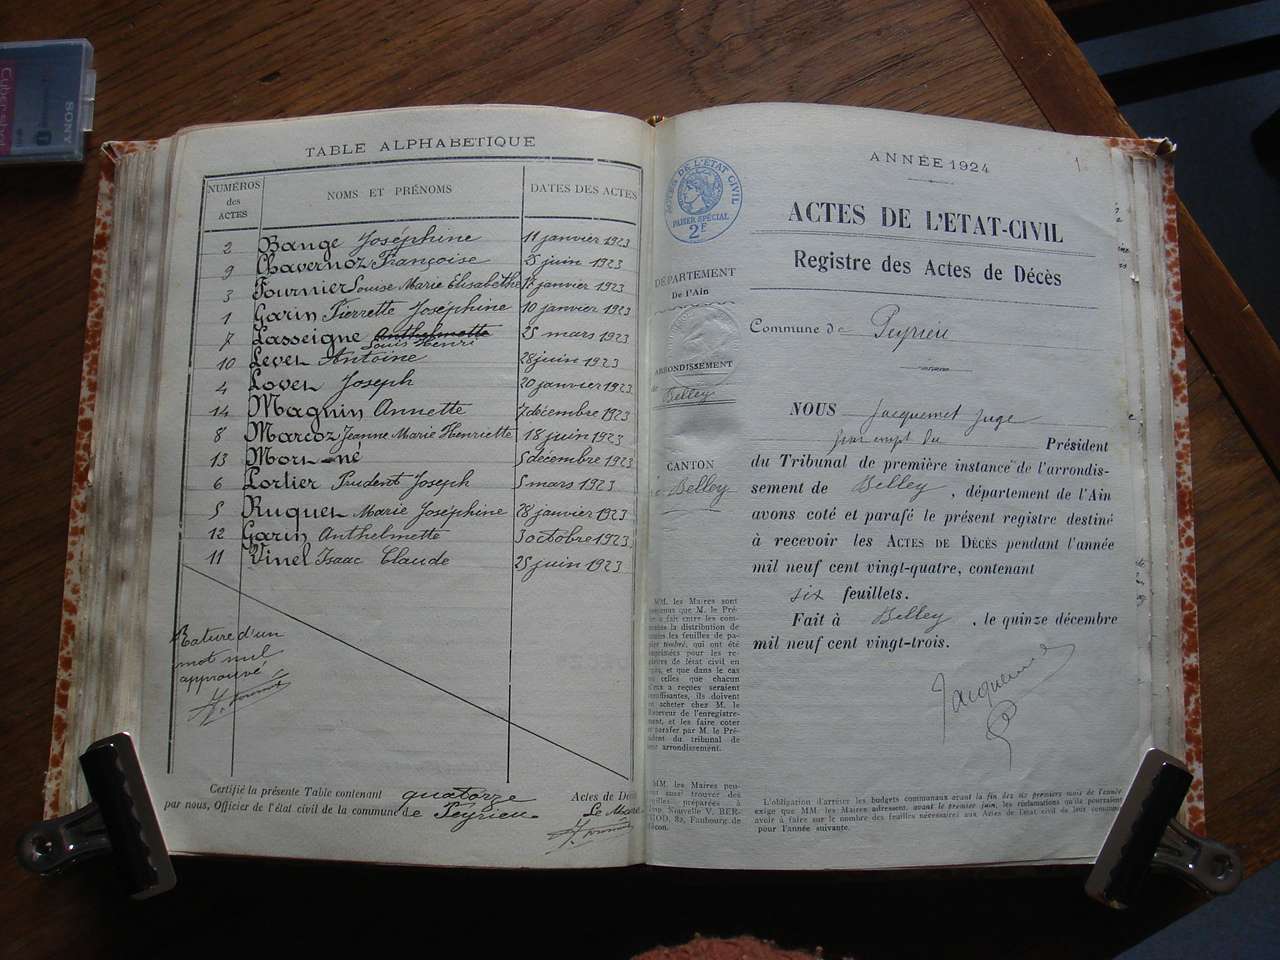 SONY
Cybersho
TABLE ALPHABETIQUE
NUMÉROS des ACTES
NOMS ET PRÉNOMS
DATES DES ACTES
2 Bange Joséphine 11 janvier 1923
9 Chavernoz Françoise 25 juin 1923
3 Fournier Louise Marie Elisabethe janvier 1923
1 Garin Pierrette Joséphine 10 janvier 1923
7 Lasseigne Anthelmette 25 mars 1923
Louis Henri
10 Levet Antoine 28 juin 1923
4 Lovet Joseph 20 janvier 1923
14 Magnin Annette 7 décembre 1923
8 Marcoz Jeanne Marie Henriette 18 juin 1923
13 Mort-né 5 décembre 1923
6 Portier Prudent Joseph 5 mars 1923
5 Ruquet Marie Joséphine 28 janvier 1923
12 Garin Anthelmette 3 octobre 1923
11 Vinel Isaac Claude 25 juin 1923
Rature d'un
mot nul
approuvé
Certifié la présente Table contenant quatorze Actes de Dé
par nous, Officier de l'état civil de la commune de Peyrieu
Le Maire
ANNÉE 1924
1
DE L'ÉTAT CIVIL
PAPIER SPÉCIAL
2F
ACTES DE L'ÉTAT-CIVIL
Registre des Actes de Décès
DÉPARTEMENT
De l'Ain
Commune de Peyrieu
ARRONDISSEMENT
de Belley
NOUS Jacquemet Juge
Président
du Tribunal de première instance de l'arrondis-
sement de Belley, département de l'Ain
avons coté et parafé le présent registre destiné
à recevoir les ACTES DE DÉCÈS pendant l'année
mil neuf cent vingt-quatre, contenant
six feuillets.
Fait à Belley, le quinze décembre
mil neuf cent vingt-trois.
Jacquemet
CANTON
Belley
MM. les Maires sont
prévenus que M. le Pré-
fet a fait entre les com-
munes la distribution de
toutes les feuilles de pa-
pier timbré, qui ont été
imprimées pour les re-
gistres de l'état civil en
et que dans le cas
où celles que chacun
d'eux a reçues seraient
insuffisantes, ils doivent
en acheter chez M. le
Receveur de l'enregistre-
ment, et les faire coter
et parafer par M. le Pré-
sident du tribunal de
leur arrondissement.
MM. les Maires peu-
vent aussi trouver des
feuilles préparées à
Nouvelle V. BER-
82, Faubourg de
Mâcon.
L'obligation d'arrêter les budgets communaux avant la fin des six premiers mois de l'année
exige que MM. les Maires adressent, avant le premier juin, les réclamations qu'ils pourraient
avoir à faire sur le nombre des feuilles nécessaires aux Actes de l'état civil de leur commune
pour l'Année suivante.